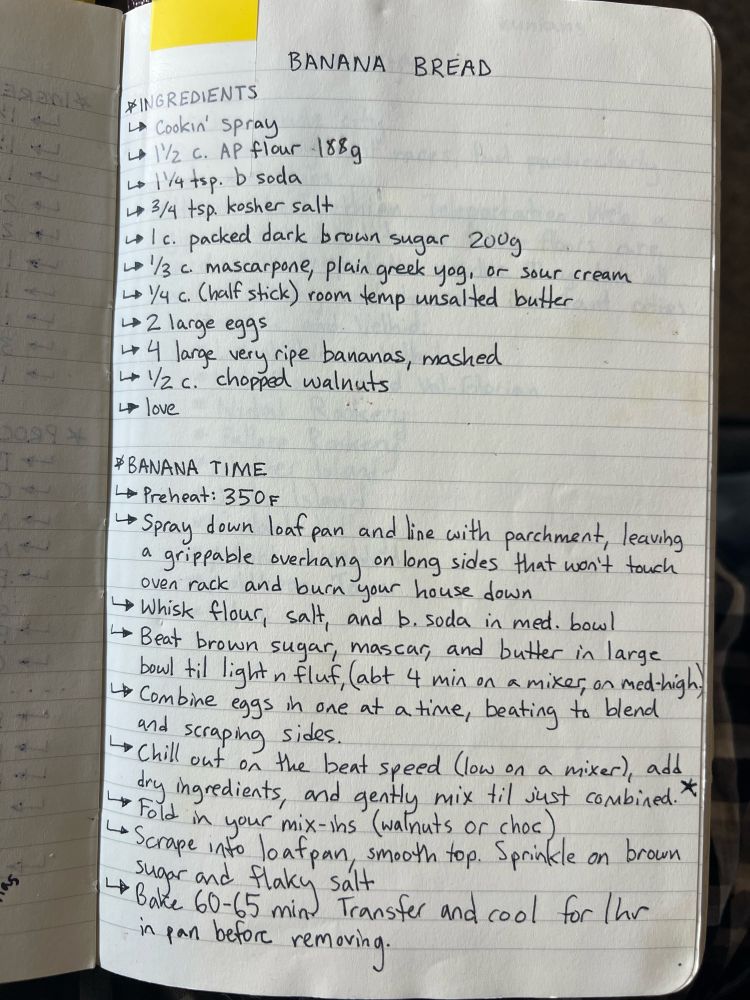 BANANA BREAD
*INGREDIENTS
↳ Cookin' spray
↳ 1 1/2 c. AP flour 188g
↳ 1 1/4 tsp. b soda
↳ 3/4 tsp. kosher salt
↳ 1 c. packed dark brown sugar 200g
↳ 1/3 c. mascarpone, plain greek yog, or sour cream
↳ 1/4 c. (half stick) room temp unsalted butter
↳ 2 large eggs
↳ 4 large very ripe bananas, mashed
↳ 1/2 c. chopped walnuts
↳ love
*BANANA TIME
↳ Preheat: 350F
↳ Spray down loaf pan and line with parchment, leaving
a grippable overhang on long sides that won't touch
oven rack and burn your house down
↳ Whisk flour, salt, and b. soda in med. bowl
↳ Beat brown sugar, mascar, and butter in large
bowl til light n fluf, (abt 4 min on a mixer, on med-high)
↳ Combine eggs in one at a time, beating to blend
and scraping sides.
↳ Chill out on the beat speed (low on a mixer), add
dry ingredients, and gently mix til just combined.*
↳ Fold in your mix-ins (walnuts or choc)
↳ Scrape into loafpan, smooth top. Sprinkle on brown
sugar and flaky salt
↳ Bake 60-65 min) Transfer and cool for 1hr
in pan before removing.